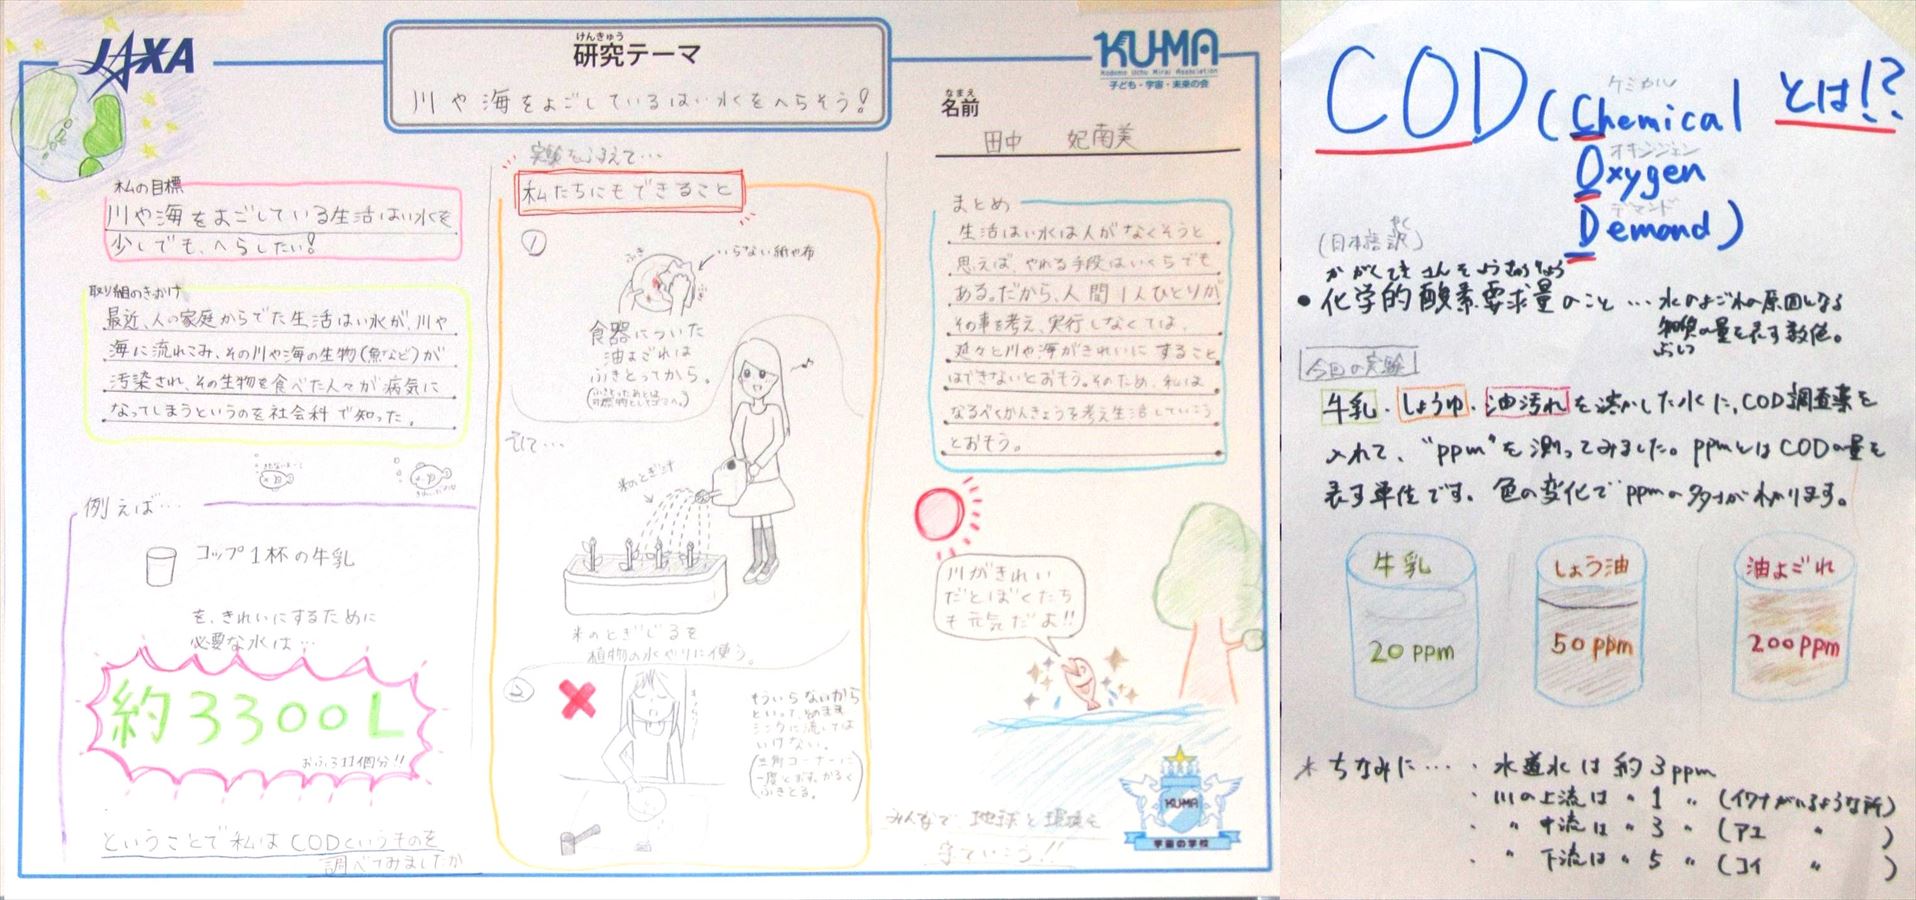 JAXA
けんきゅう
研究テーマ
川や海をよごしているはい水をへらそう!
KU-MA
Kodomo Uchu Mirai Association
子ども・宇宙・未来の会
なまえ
名前
田中 妃南美
私の目標
川や海をよごしている生活はい水を
少しでも、へらしたい!
取り組のきっかけ
最近、人の家庭からでた生活はい水が、川や
海に流れこみ、その川や海の生物(魚など)が
汚染され、その生物を食べた人々が病気に
なってしまうというのを社会科で知った。
例えば…
コップ1杯の牛乳
を、きれいにするために
必要な水は…
約3300L
おふろ11個分!!
ということで私はCODというものを
調べてみました
実験をふまえて…
私たちにもできること
①
ふき
ふき
いらない紙や布
食器についた
油よごれは
ふきとってから。
米のとぎ汁
米のとぎじるを
植物の水やりに使う。
②
もういらないから
といって、そのまま
シンクに流しては
いけない。
(三角コーナーに
一度とおす。かるく
ふきとる。)
まとめ
生活はい水は人がなくそうと
思えば、やれる手段はいくらでも
ある。だから、人間1人ひとりが
その事を考え、実行しなくては、
延々と川や海がきれいにすること
はできないとおもう。そのため、私は
なるべくかんきょうを考え生活していこう
とおもう。
川がきれい
だとぼくたち
も元気だよ!!
みんなで、地球と環境を
守っていこう!!
KUMA
宇宙の学校
COD(Chemical とは!?
ケミカル
オキシジェン
Oxygen
デマンド
Demond)
(日本語訳)
やく
かがくてきさんそようきゅうりょう
●化学的酸素要求量のこと…水のよごれの原因となる
物質の量を表す数値。
ぶしつ
今回の実験
牛乳・しょうゆ・油汚れを溶かした水に、COD調査薬を
入れて、"ppm"を測ってみました。ppmとはCODの量を
表す単位です。色の変化でppmの多さがわかります。
牛乳
20 ppm
しょう油
50 ppm
油よごれ
200 ppm
*ちなみに…・水道水は約3ppm
・川の上流は〃1〃(イワナがいるような所)
・〃中流は〃3〃(アユ 〃 )
・〃下流は〃5〃(コイ 〃 )